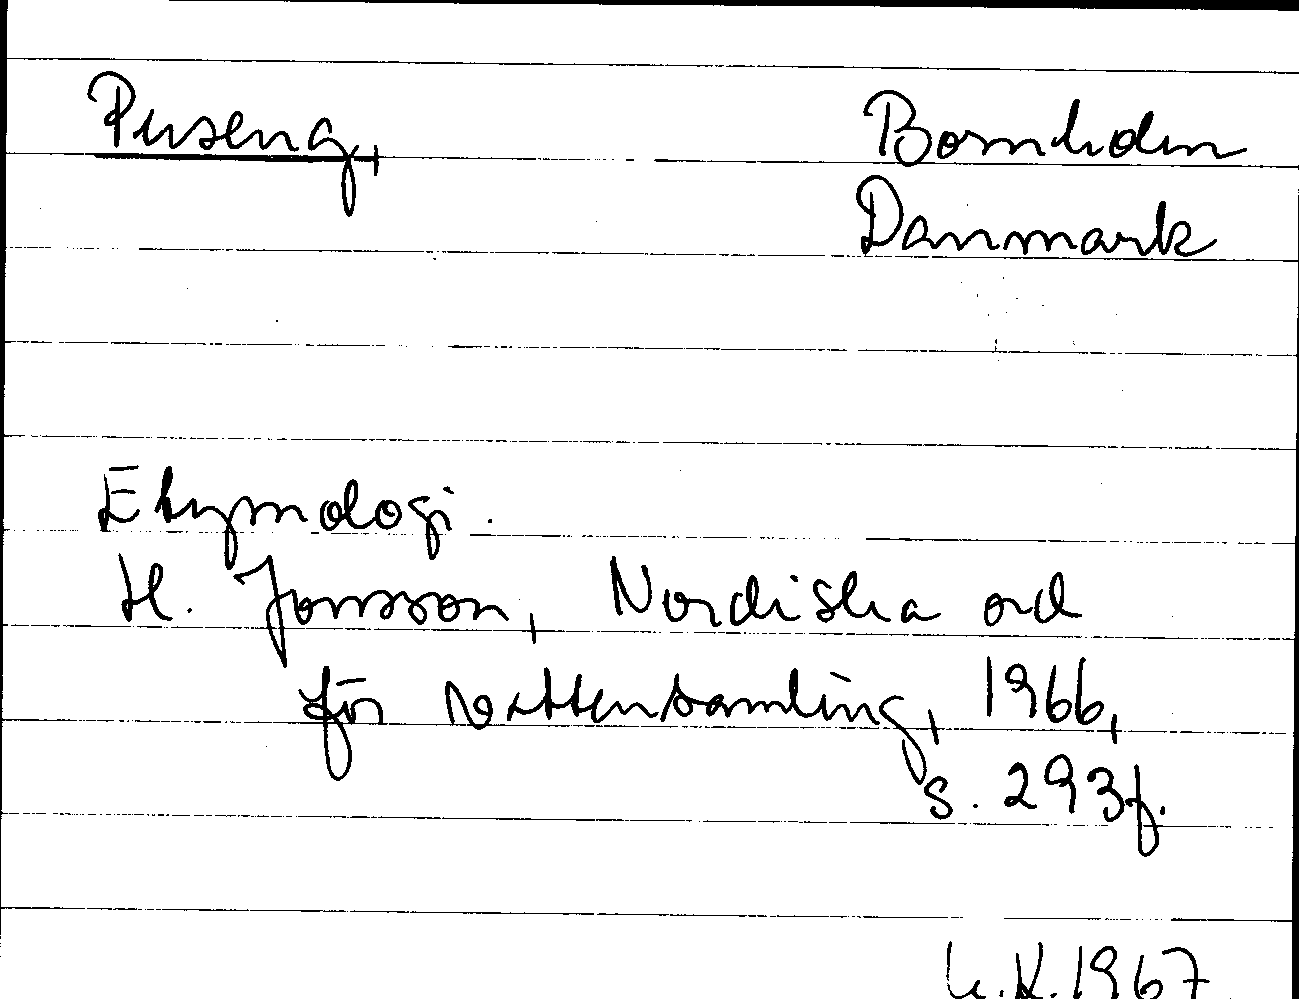 Puseng,
Bornholm
Danmark
Etymologi.
H. Jonsson, Nordiska ord
för vattensamling, 1966,
s. 293f.
K. 1967